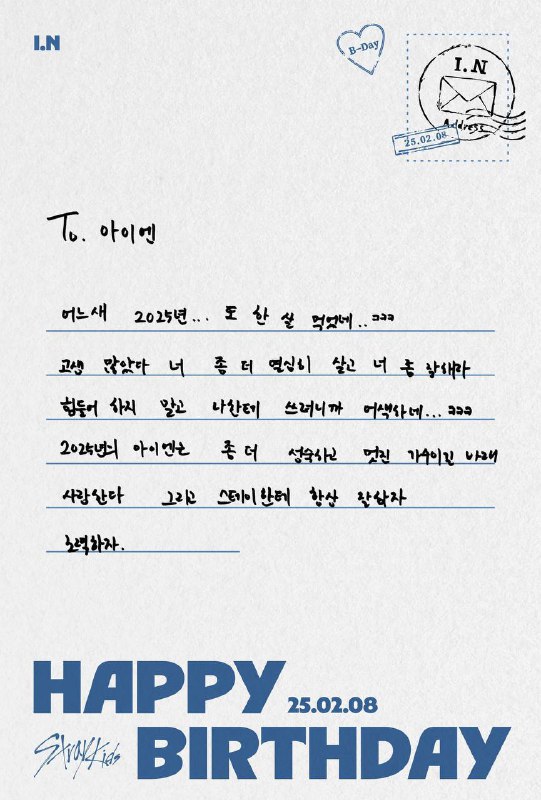 I.N
B-Day
I.N
Address
25.02.08
To. 아이엔
어느새 2025년... 또 한 살 먹었네..ㅋㅋㅋ
고생 많았다 너 좀 더 열심히 살고 너 좀 잘해라
힘들어 하지 말고 나한테 쓰려니까 어색하네...ㅋㅋㅋ
2025년의 아이엔은 좀 더 성숙하고 멋진 가수이길 바래
사랑한다 그리고 스테이한테 항상 잘하자
노력하자.
HAPPY
25.02.08
Stray Kids
BIRTHDAY